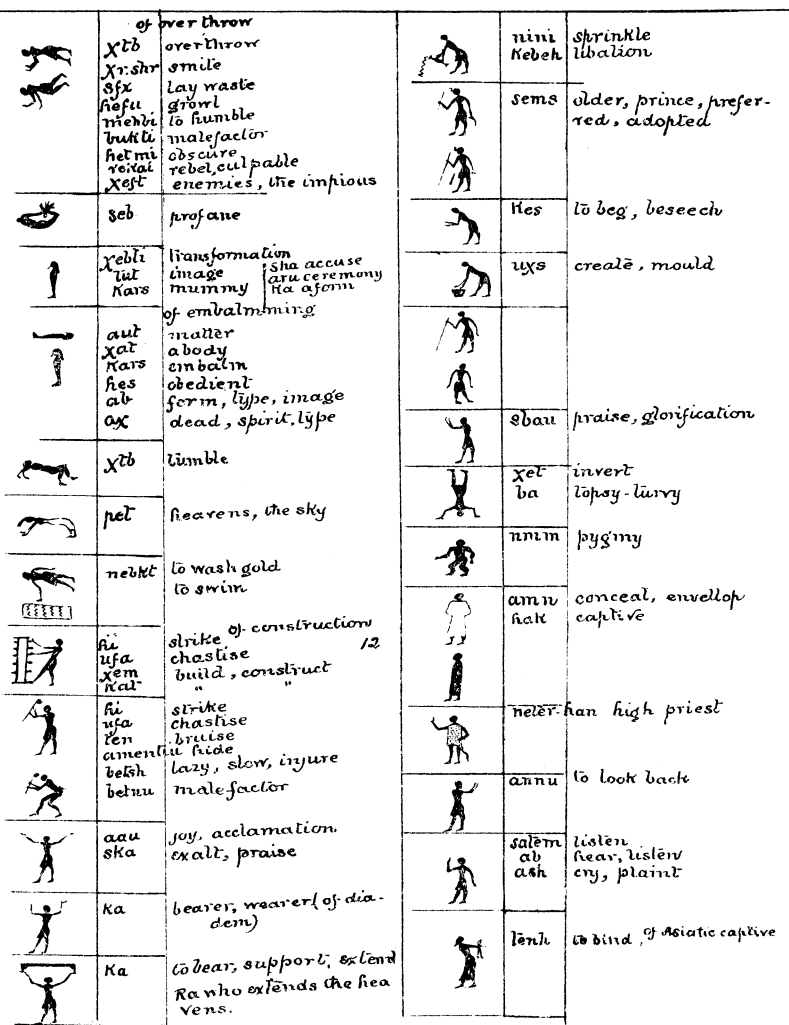 of overthrow
χtb overthrow
χr.shr smile
sfχ lay waste
hefu growl
menbi to humble
bukti malefactor
hetmi obscure
reκai rebel, culpable
χeft enemies, the impious
seb profane
χebti transformation
tut image
Kars mummy
sha accuse
aru ceremony
Ka a form
of embalmming
aut matter
χat a body
Kars embalm
hes obedient
ab form, type, image
aχ dead, spirit, type
χtb tumble
pet heavens, the sky
nebkt to wash gold
to swim
of construction
hi strike 12
ufa chastise
χem build, construct
Kat " "
hi strike
ufa chastise
ten bruise
amentiu hide
betsh lazy, slow, injure
betnu malefactor
aau joy, acclamation
ska exalt, praise
Ka bearer, wearer (of dia-
dem)
Ka to bear, support, extend
Ra who extends the hea
vens.
nini sprinkle
Kebeh libation
sems older, prince, prefer-
red, adopted
Kes to beg, beseech
uχs create, mould
sbau praise, glorification
χet invert
ba topsy-turvy
nnım pygmy
amn conceal, envellop
hak captive
neter-han high priest
annu to look back
satem listen
ab hear, listen
ash cry, plaint
tenh to bind, of Asiatic captive